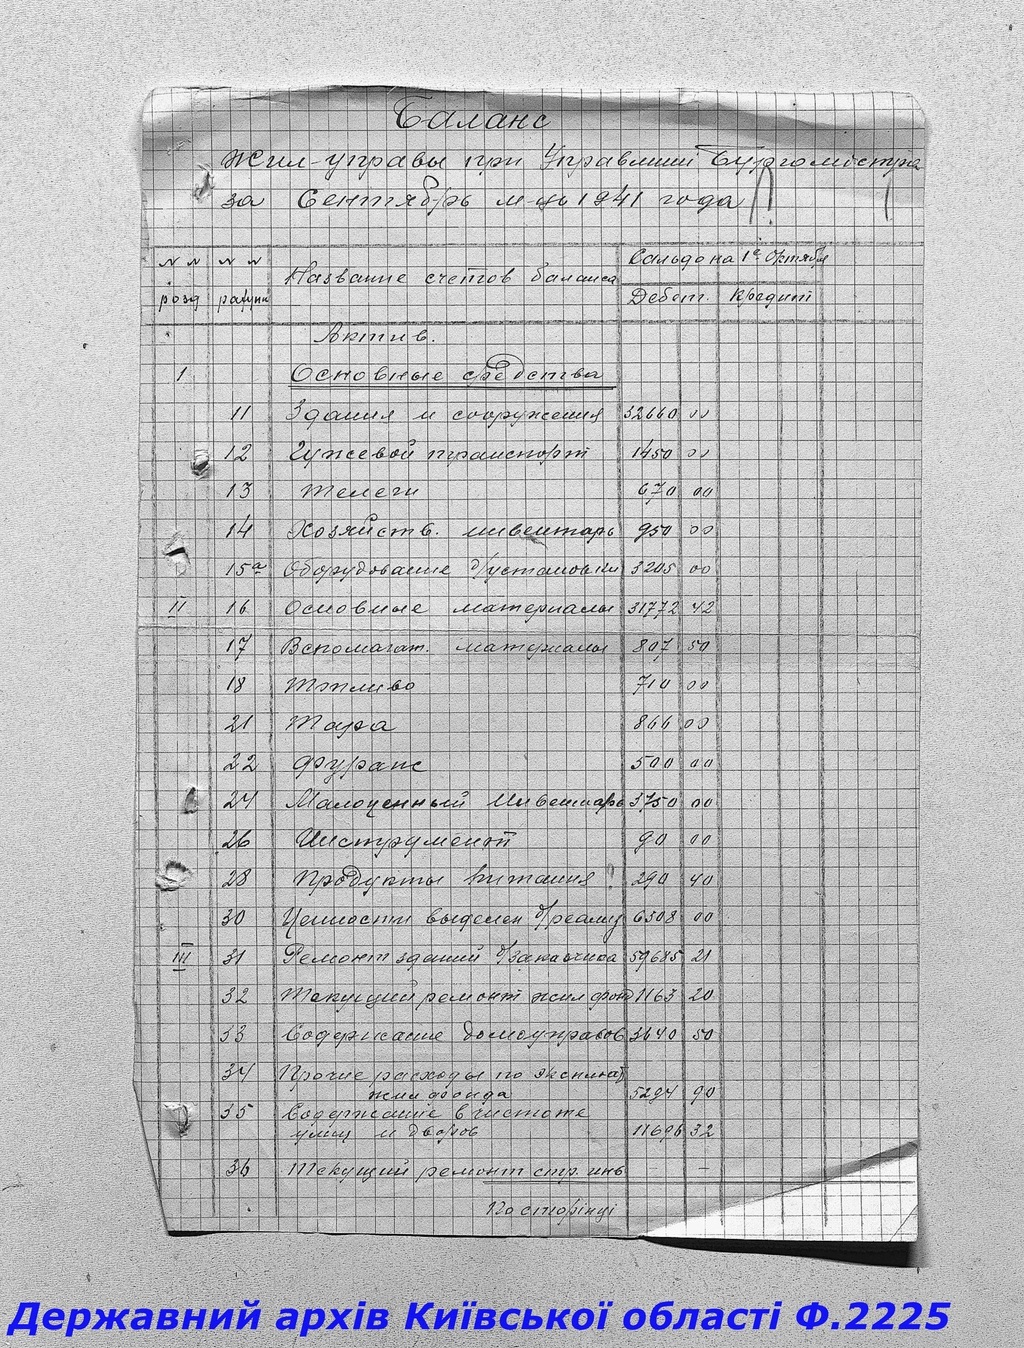 Баланс
Жил-управы при Управлінні Бургомістра
за Сентябрь м-ць 1941 года
№ № № № Название счетов баланса Сальдо на 1е Октября
розд рахунк Дебет. Кредит
Актив.
1 Основные средства
11 Здания и сооружения 32660 00
12 Гужевой транспорт 1450 00
13 Телеги 670 00
14 Хозяйств. инвентарь 950 00
15а Оборудование б/установки 3205 00
II 16 Основные материалы 31772 42
17 Вспомагат. материалы 807 50
18 Топливо 710 00
21 Тара 866 00
22 Фураж 500 00
24 Малоценный Инвентарь 3750 00
26 Инструмент 90 00
28 Продукты питания 290 40
30 Ценности выделен б/реализ 6308 00
III 31 Ремонт зданий б/заказчика 59685 21
32 Текущий ремонт жилфонд 1163 20
33 Содержание домоуправов 3640 50
34 Прочие расходы по эксплоат
жилфонда 5294 90
35 Содержание в чистоте
улиц и дворов 11696 32
36 Текущий ремонт стр. инв – –
По сторінці
Державний архів Київської області Ф.2225